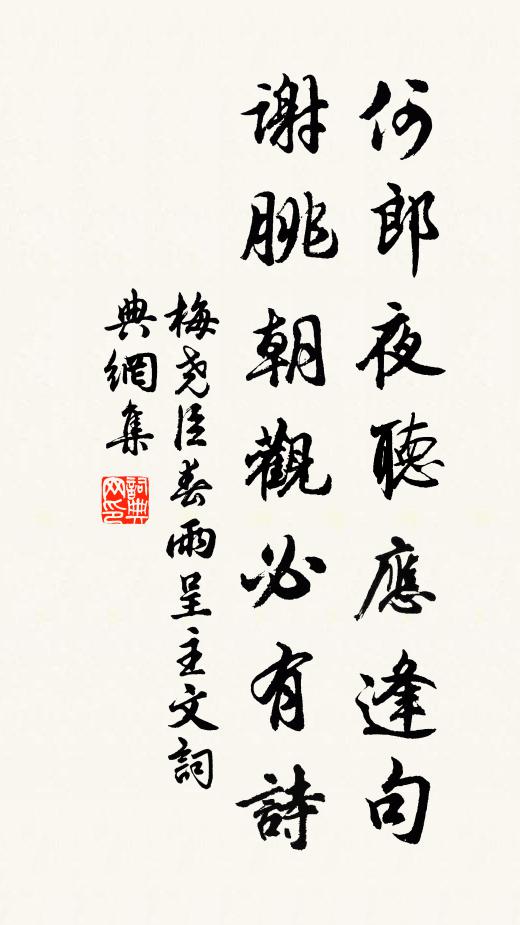 何郎夜聽應逢句
謝朓朝觀必有詩
梅堯臣春雨呈主文詞
典網集
詞典
网印